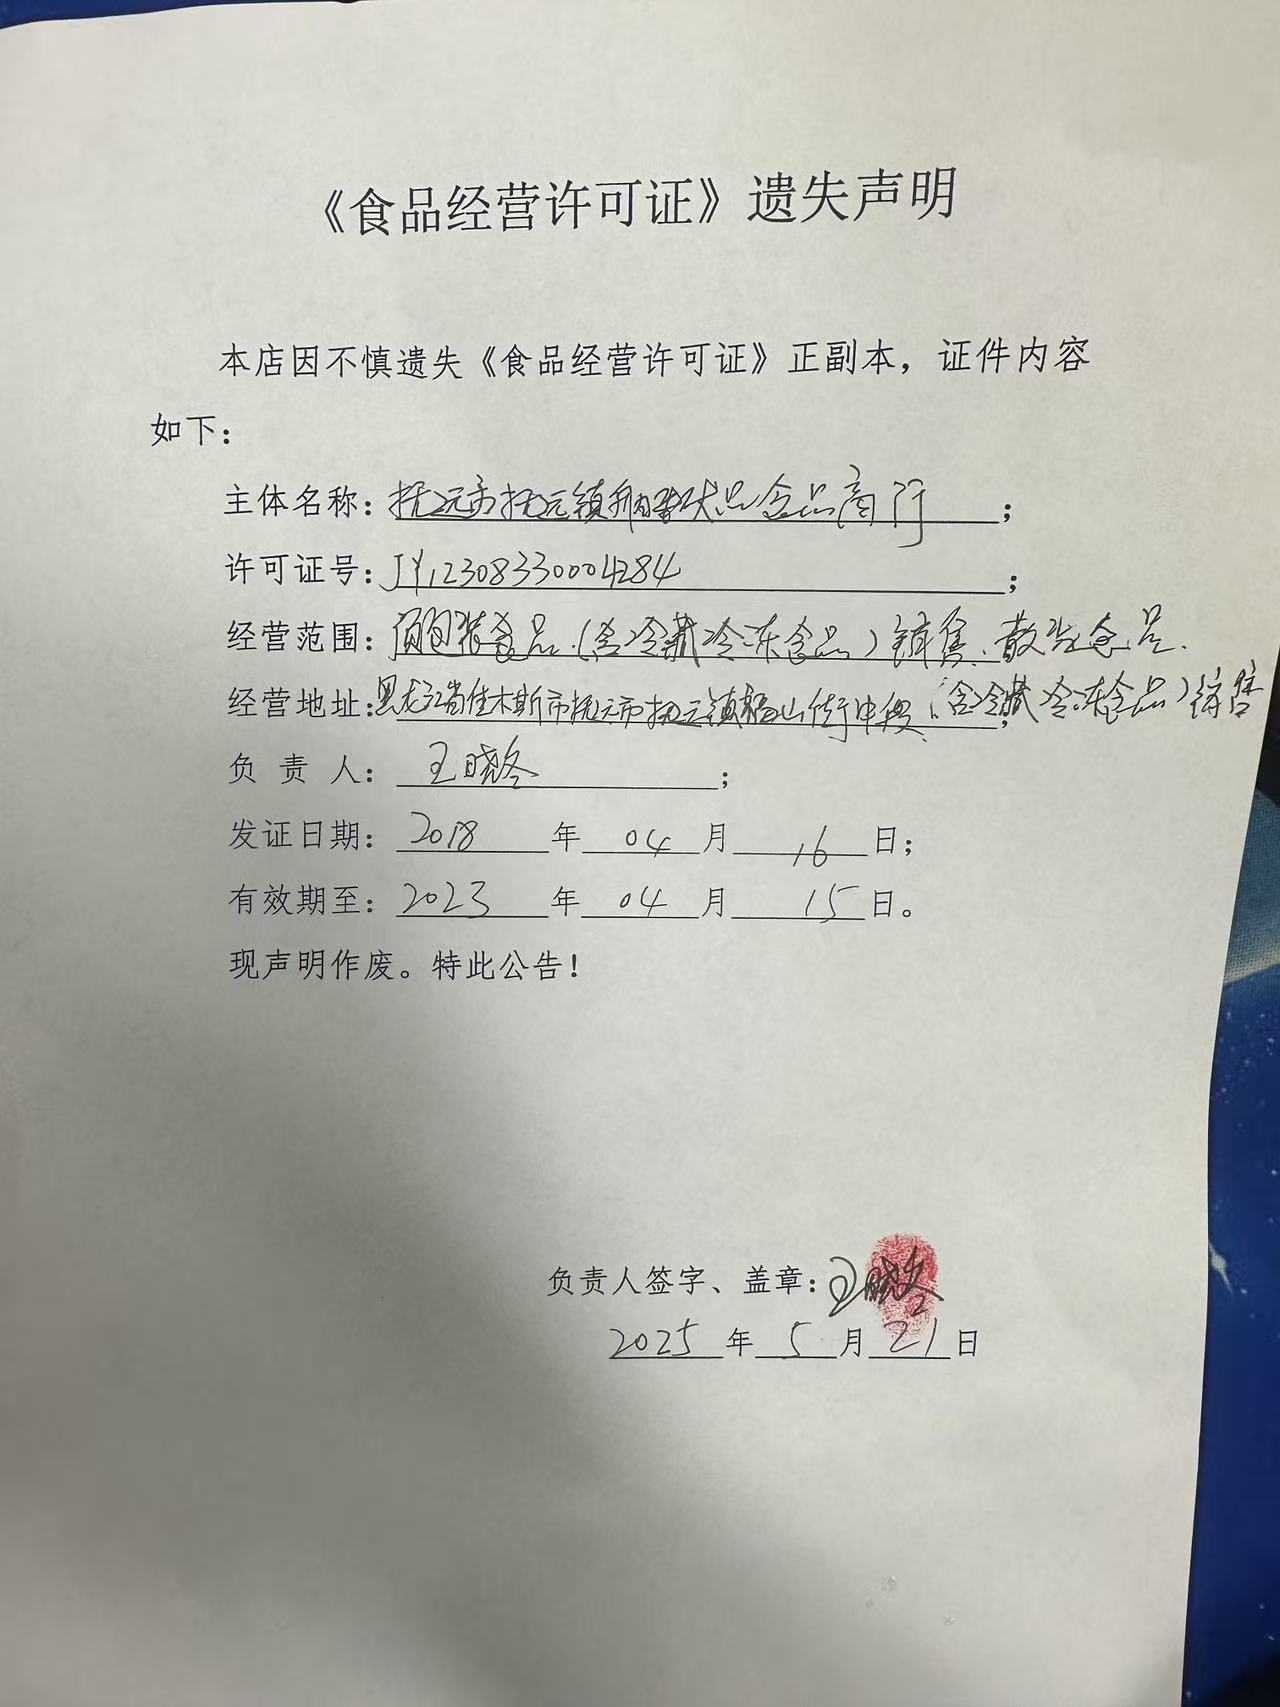 《食品经营许可证》遗失声明
本店因不慎遗失《食品经营许可证》正副本，证件内容
如下：
主体名称：抚远市抚远镇食品商行；
许可证号：JY12308330004284；
经营范围：预包装食品（含冷藏冷冻食品）销售、散装食品
（含冷藏冷冻食品）销售
经营地址：黑龙江省佳木斯市抚远市抚远镇山街中段；
负责人：王晓冬；
发证日期：2018年04月16日；
有效期至：2023年04月15日。
现声明作废。特此公告！
负责人签字、盖章：王晓冬
2025年5月21日